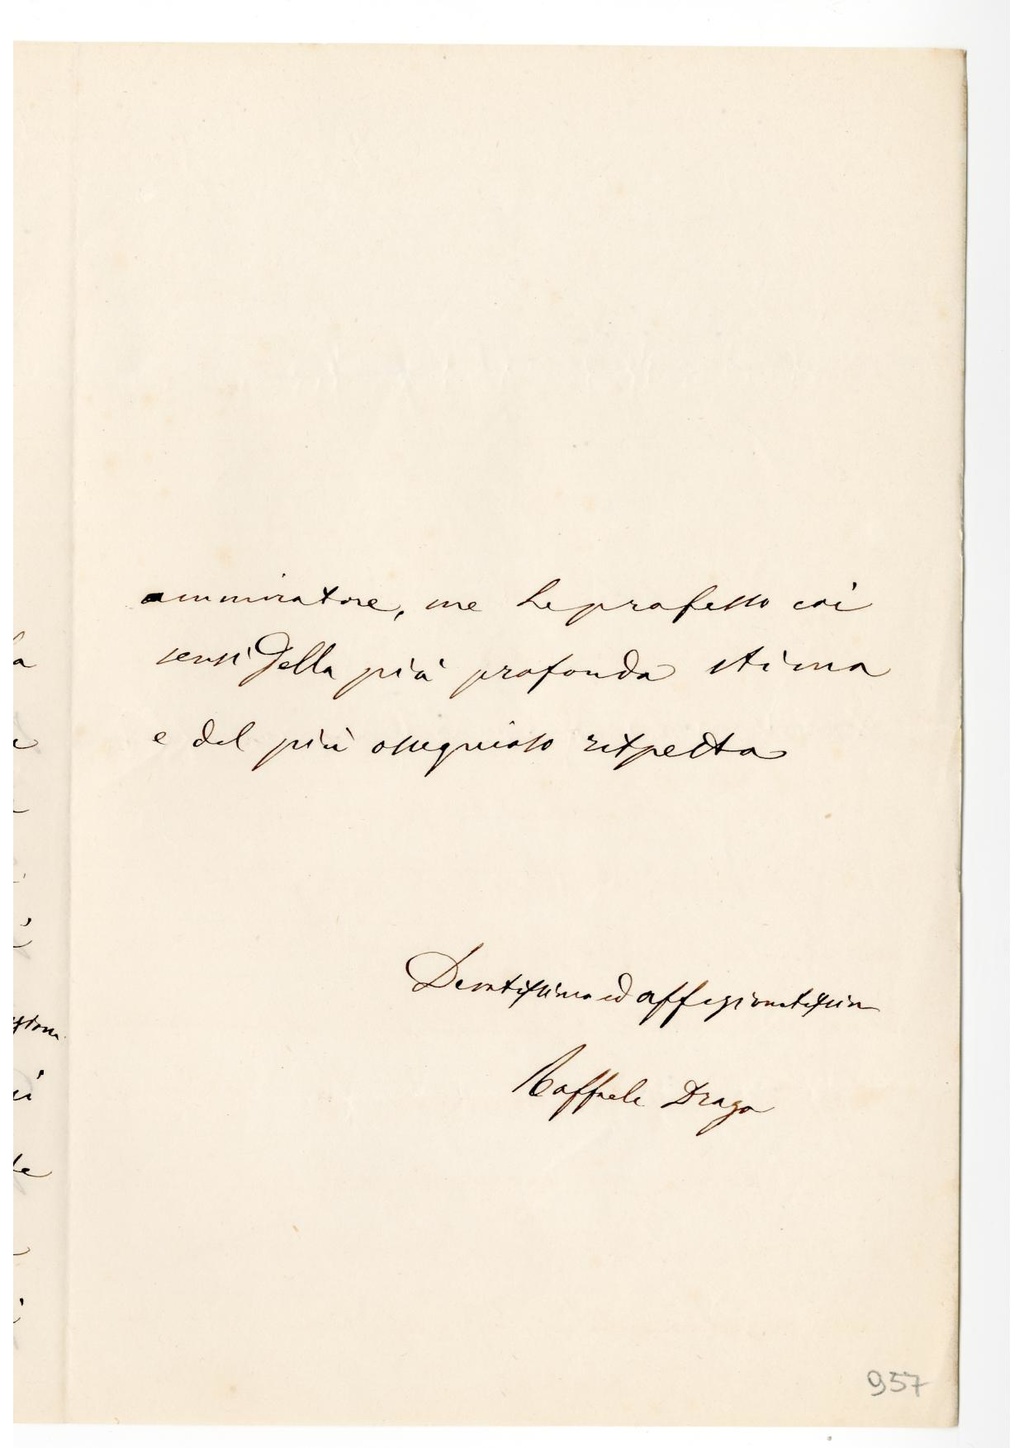 ammiratore, me le professo coi
sensi della più profonda stima
e del più ossequioso rispetto
Devotissimo ed affezionatissimo
Raffaele Drago
957